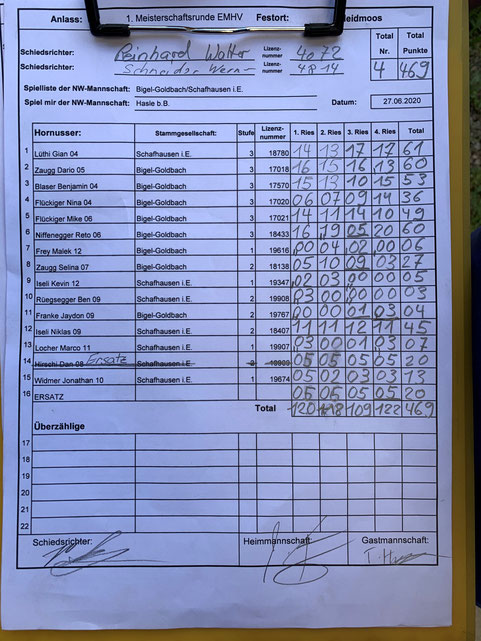 Anlass: 1. Meisterschaftsrunde EMHV Festort: eidmoos
Schiedsrichter: Reinhard Walter Lizenz-nummer 4072 Total Nr. Total Punkte
Schiedsrichter: Schneider Wern Lizenz-nummer 4814 4 469
Spielliste der NW-Mannschaft: Bigel-Goldbach/Schafhausen i.E.
Spiel mir der NW-Mannschaft: Hasle b.B. Datum: 27.06.2020
Hornusser: Stammgesellschaft: Stufe Lizenz-nummer 1. Ries 2. Ries 3. Ries 4. Ries Total
1 Lüthi Gian 04 Schafhausen i.E. 3 18780 14 13 17 17 61
2 Zaugg Dario 05 Bigel-Goldbach 3 17018 16 15 16 13 60
3 Blaser Benjamin 04 Bigel-Goldbach 3 17570 15 13 10 15 53
4 Flückiger Nina 04 Bigel-Goldbach 3 17020 06 07 09 14 36
5 Flückiger Mike 06 Bigel-Goldbach 3 17021 14 11 14 10 49
6 Niffenegger Reto 06 Bigel-Goldbach 3 18433 16 19 05 20 60
7 Frey Malek 12 Bigel-Goldbach 1 19616 00 04 02 00 06
8 Zaugg Selina 07 Bigel-Goldbach 2 18138 05 10 09 03 27
9 Iseli Kevin 12 Schafhausen i.E. 1 19347 02 03 00 00 05
10 Rüegsegger Ben 09 Schafhausen i.E. 2 19908 03 00 00 00 03
11 Franke Jaydon 09 Bigel-Goldbach 2 19767 00 00 01 03 04
12 Iseli Niklas 09 Schafhausen i.E. 2 18407 11 11 12 11 45
13 Locher Marco 11 Schafhausen i.E. 1 19907 03 00 01 03 07
14 Hirschi Dan 08 Ersatz Schafhausen i.E. 05 05 05 05 20
15 Widmer Jonathan 10 Schafhausen i.E. 1 19674 05 02 03 03 13
16 ERSATZ 05 05 05 05 20
Total 120 118 109 122 469
Überzählige
17
18
19
20
21
22
Schiedsrichter: Heimmannschaft: Gastmannschaft: